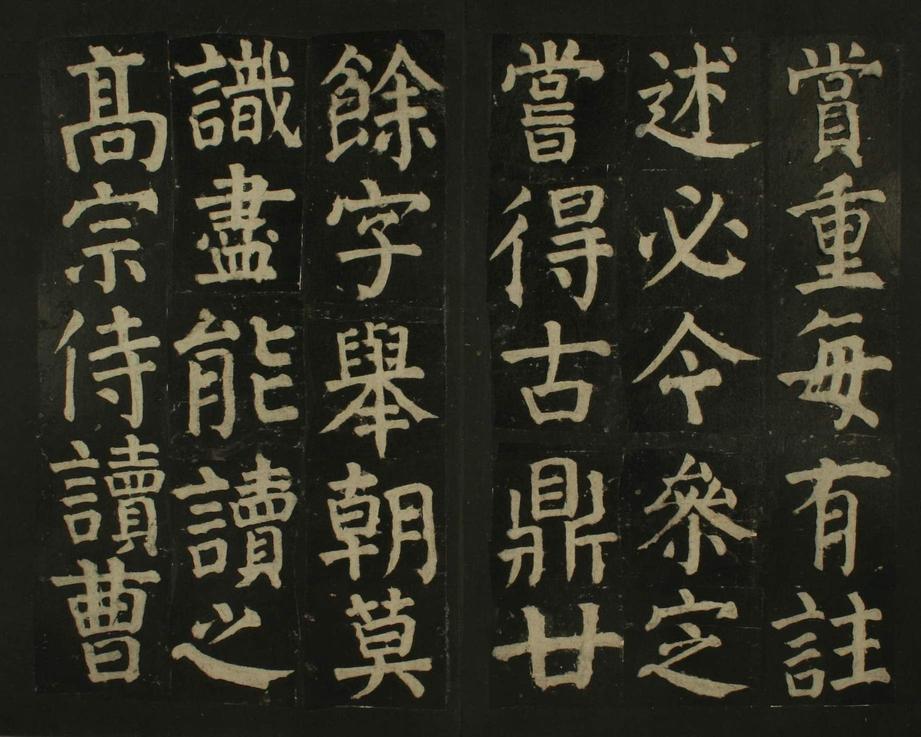 賞重每有註
述必令參定
嘗得古鼎廿
餘字舉朝莫
識盡能讀之
髙宗侍讀曹